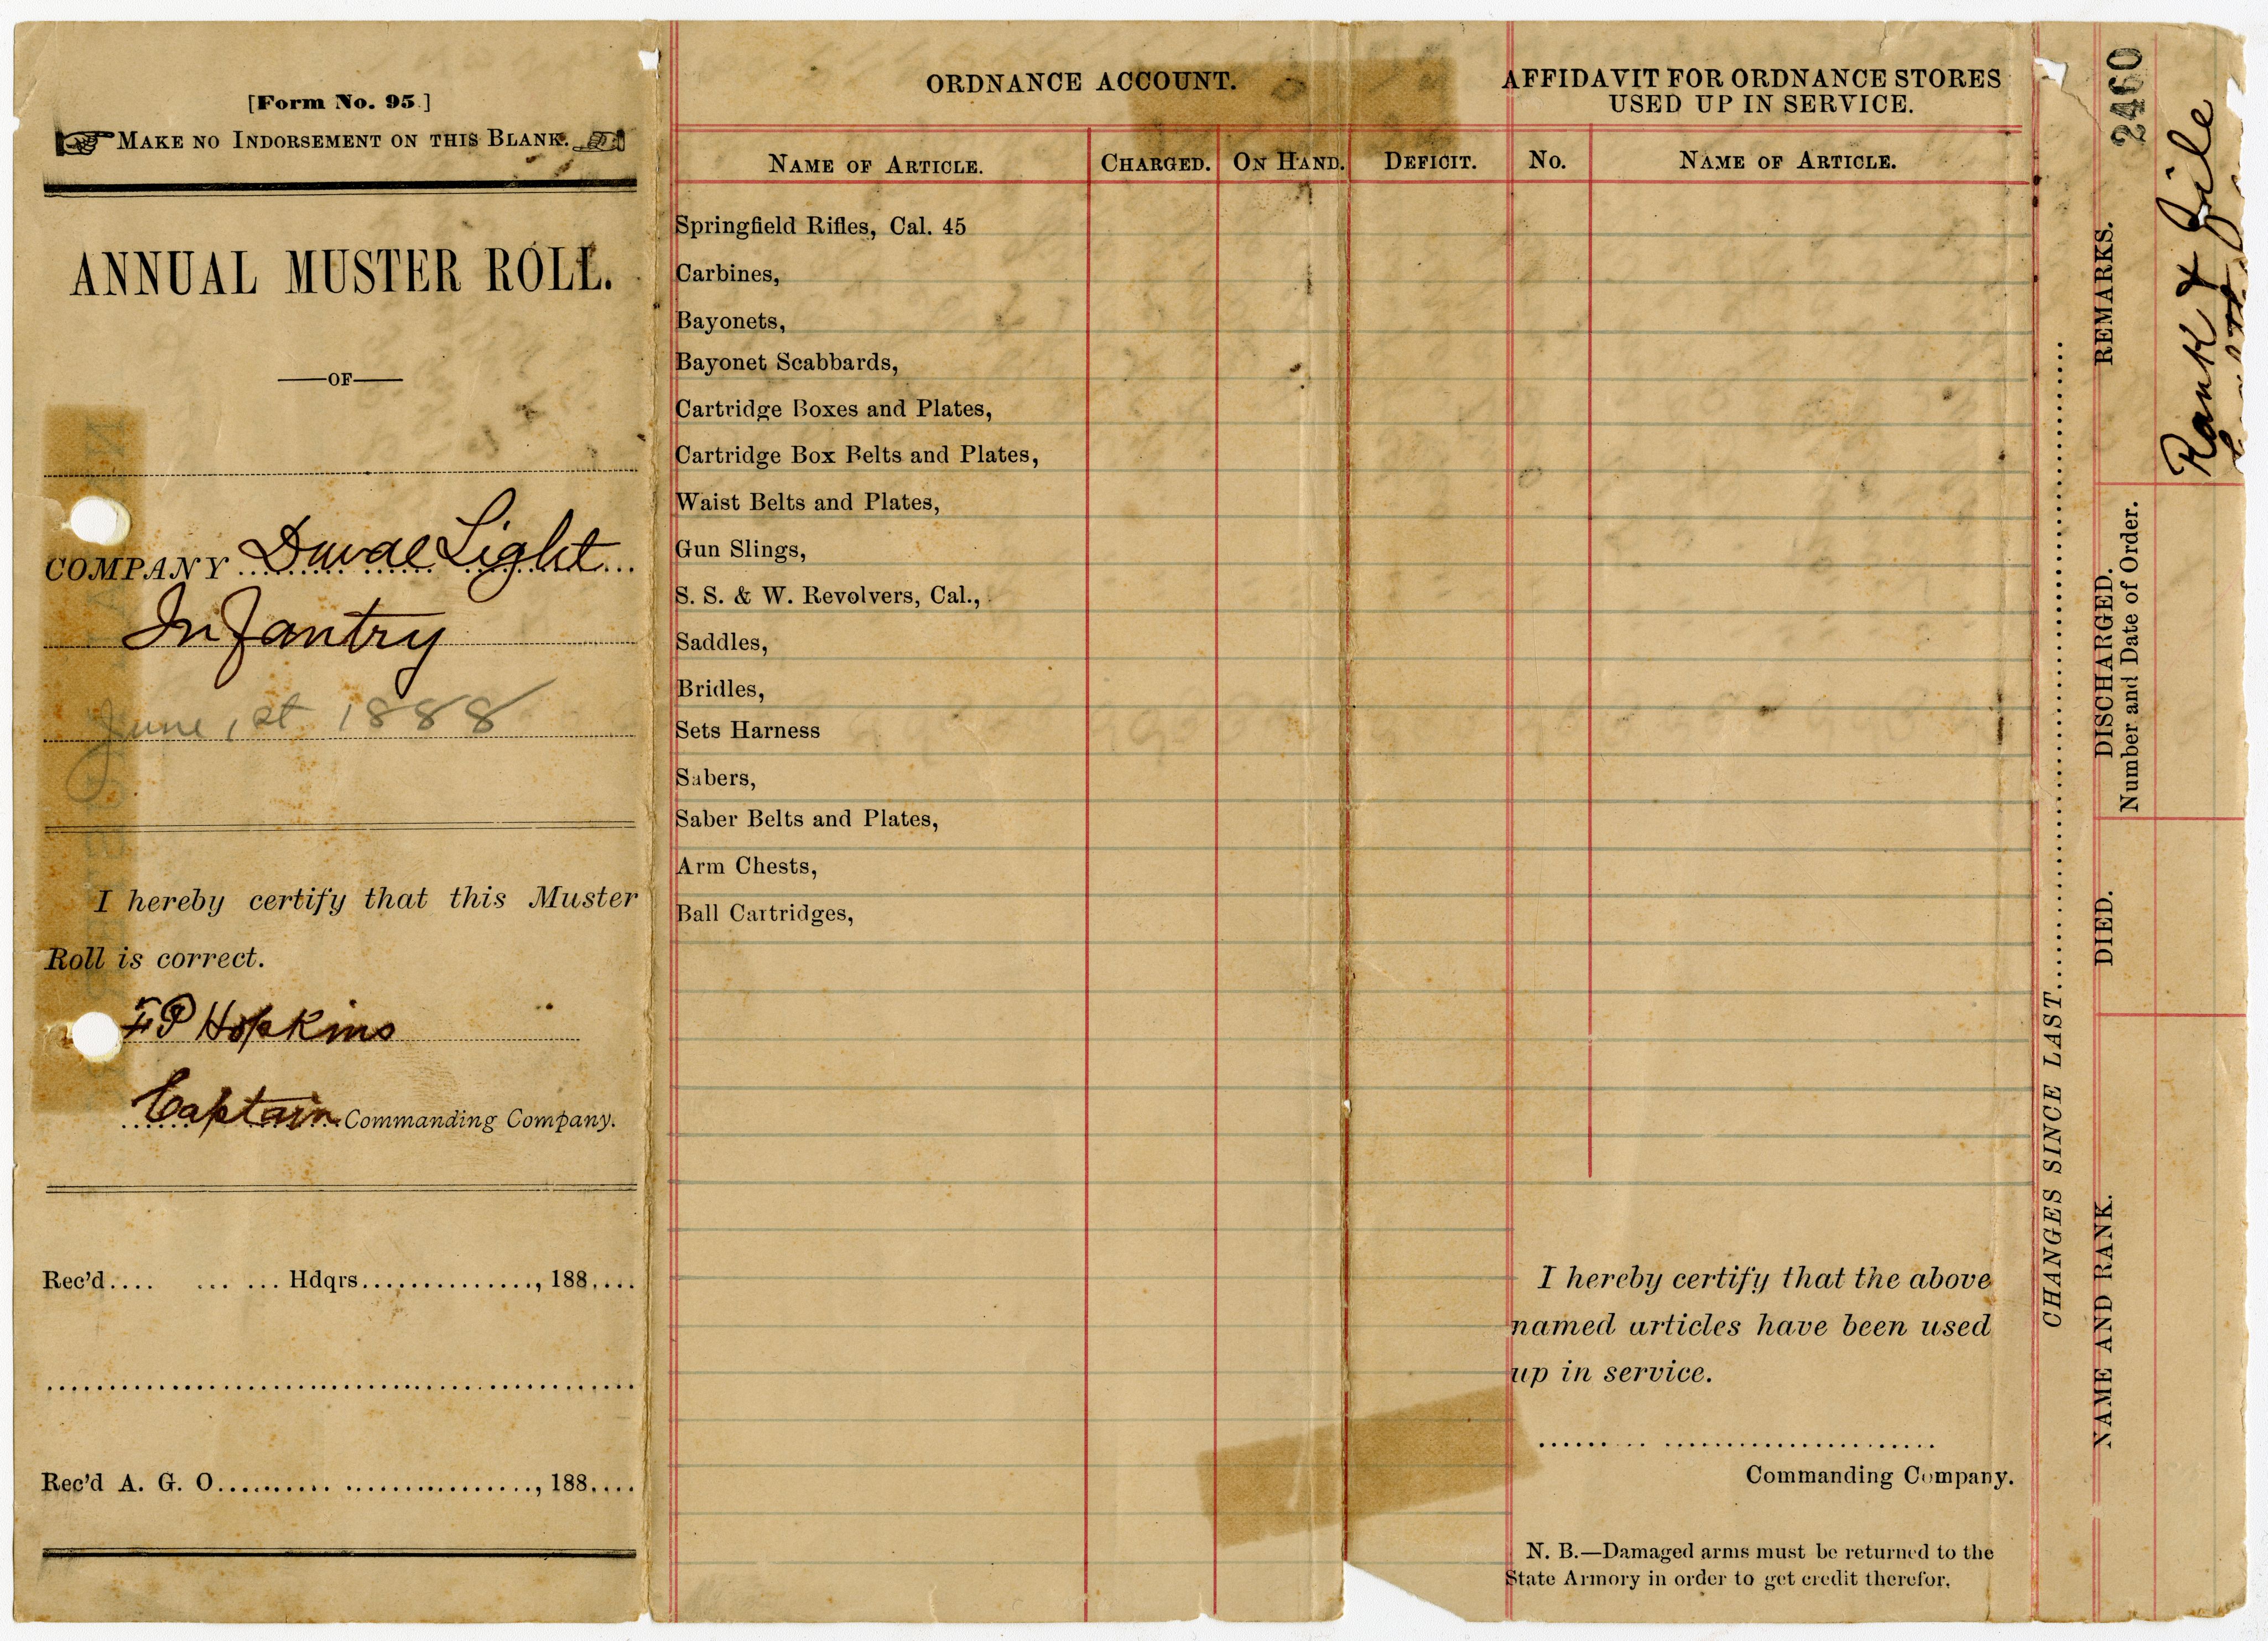 [Form No. 95.]
MAKE NO INDORSEMENT ON THIS BLANK.
ANNUAL MUSTER ROLL.
OF
COMPANY Duval Light
Infantry
June 1st 1888
I hereby certify that this Muster
Roll is correct.
FP Hopkins
Captain Commanding Company.
Rec'd.... ... ... Hdqrs..............., 188....
Rec'd A. G. O.......... ................, 188....
ORDNANCE ACCOUNT.
NAME OF ARTICLE. CHARGED. ON HAND. DEFICIT.
Springfield Rifles, Cal. 45
Carbines,
Bayonets,
Bayonet Scabbards,
Cartridge Boxes and Plates,
Cartridge Box Belts and Plates,
Waist Belts and Plates,
Gun Slings,
S. S. & W. Revolvers, Cal.,
Saddles,
Bridles,
Sets Harness
Sabers,
Saber Belts and Plates,
Arm Chests,
Ball Cartridges,
AFFIDAVIT FOR ORDNANCE STORES
USED UP IN SERVICE.
No. NAME OF ARTICLE.
I hereby certify that the above
named articles have been used
up in service.
Commanding Company.
N. B.—Damaged arms must be returned to the
State Armory in order to get credit therefor.
CHANGES SINCE LAST
NAME AND RANK. DIED. DISCHARGED. REMARKS.
Number and Date of Order.
2460
Rank & File